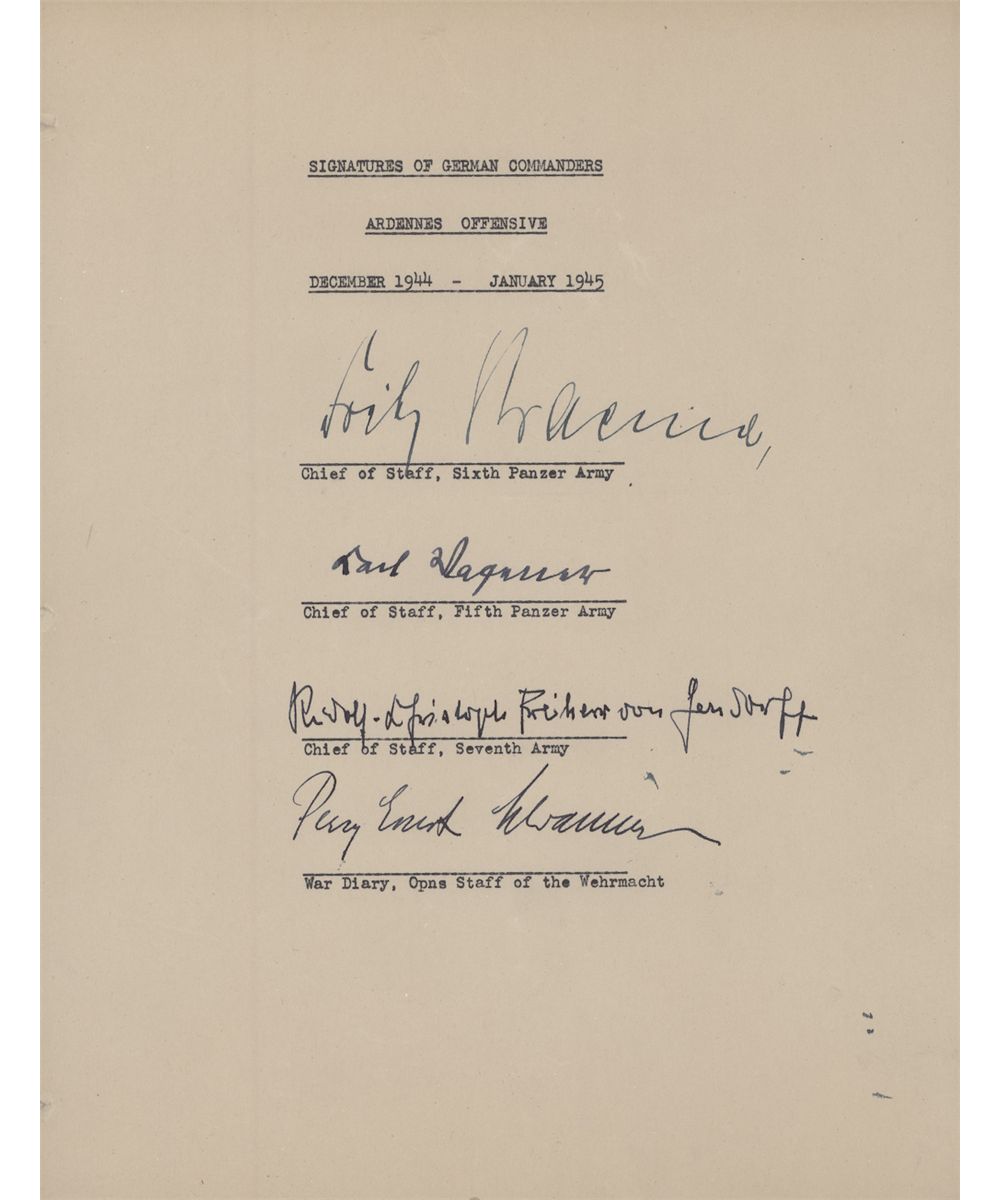 SIGNATURES OF GERMAN COMMANDERS
ARDENNES OFFENSIVE
DECEMBER 1944 - JANUARY 1945
Fritz Kraemer,
Chief of Staff, Sixth Panzer Army
Carl Wagener
Chief of Staff, Fifth Panzer Army
Rudolf-Christoph Freiherr von Gersdorff
Chief of Staff, Seventh Army
Percy Ernst Schramm
War Diary, Opns Staff of the Wehrmacht